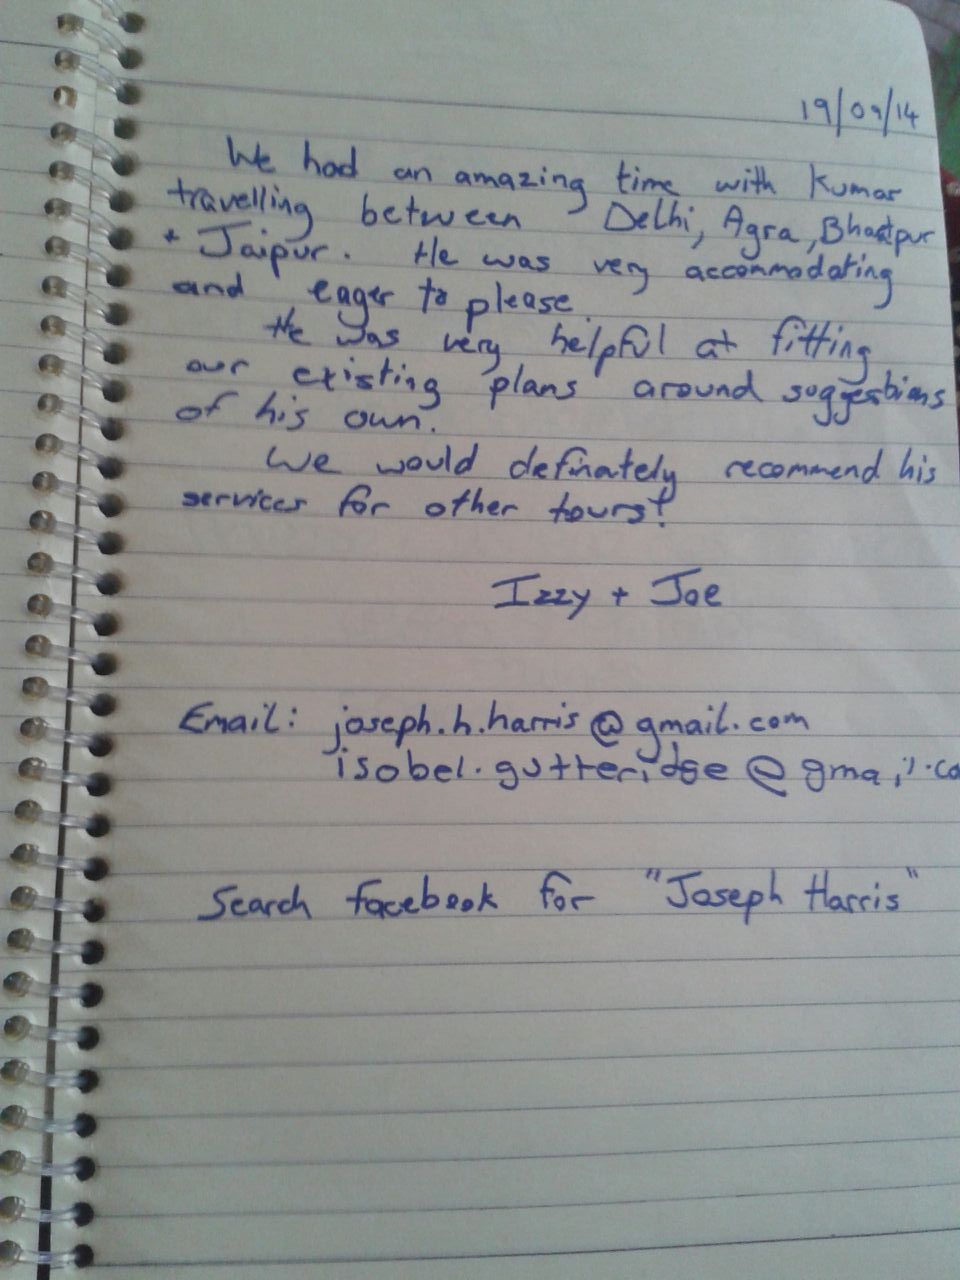 19/09/14
We had an amazing time with Kumar
travelling between Delhi, Agra, Bhartpur
+ Jaipur. He was very accommodating
and eager to please.
He was very helpful at fitting
our existing plans around suggestions
of his own.
We would definately recommend his
services for other tours!
Izzy + Joe
Email: joseph.h.harris@gmail.com
isobel.gutteridge@gmail.co
Search facebook for "Joseph Harris"